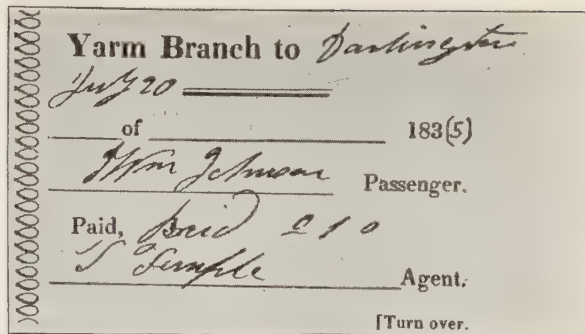 Yarm Branch to Darlington
July 20
of 183(5)
Wm Johnson Passenger.
Paid, Paid £ 1 0
T Temple Agent.
[Turn over.